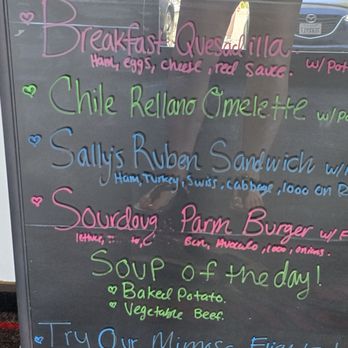 Breakfast Quesadilla
Ham, eggs, cheese, red sauce. w/ Pot
Chile Rellano Omelette w/ Po
Sally's Ruben Sandwich w/
Ham, Turkey, Swiss, cabbage, 1000 on R
Sourdoug Parm Burger w/ F
lettuce, Bcn, Avocado, 1000, onions.
Soup of the day!
Baked Potato.
Vegetable Beef.
Try Our Mimosa